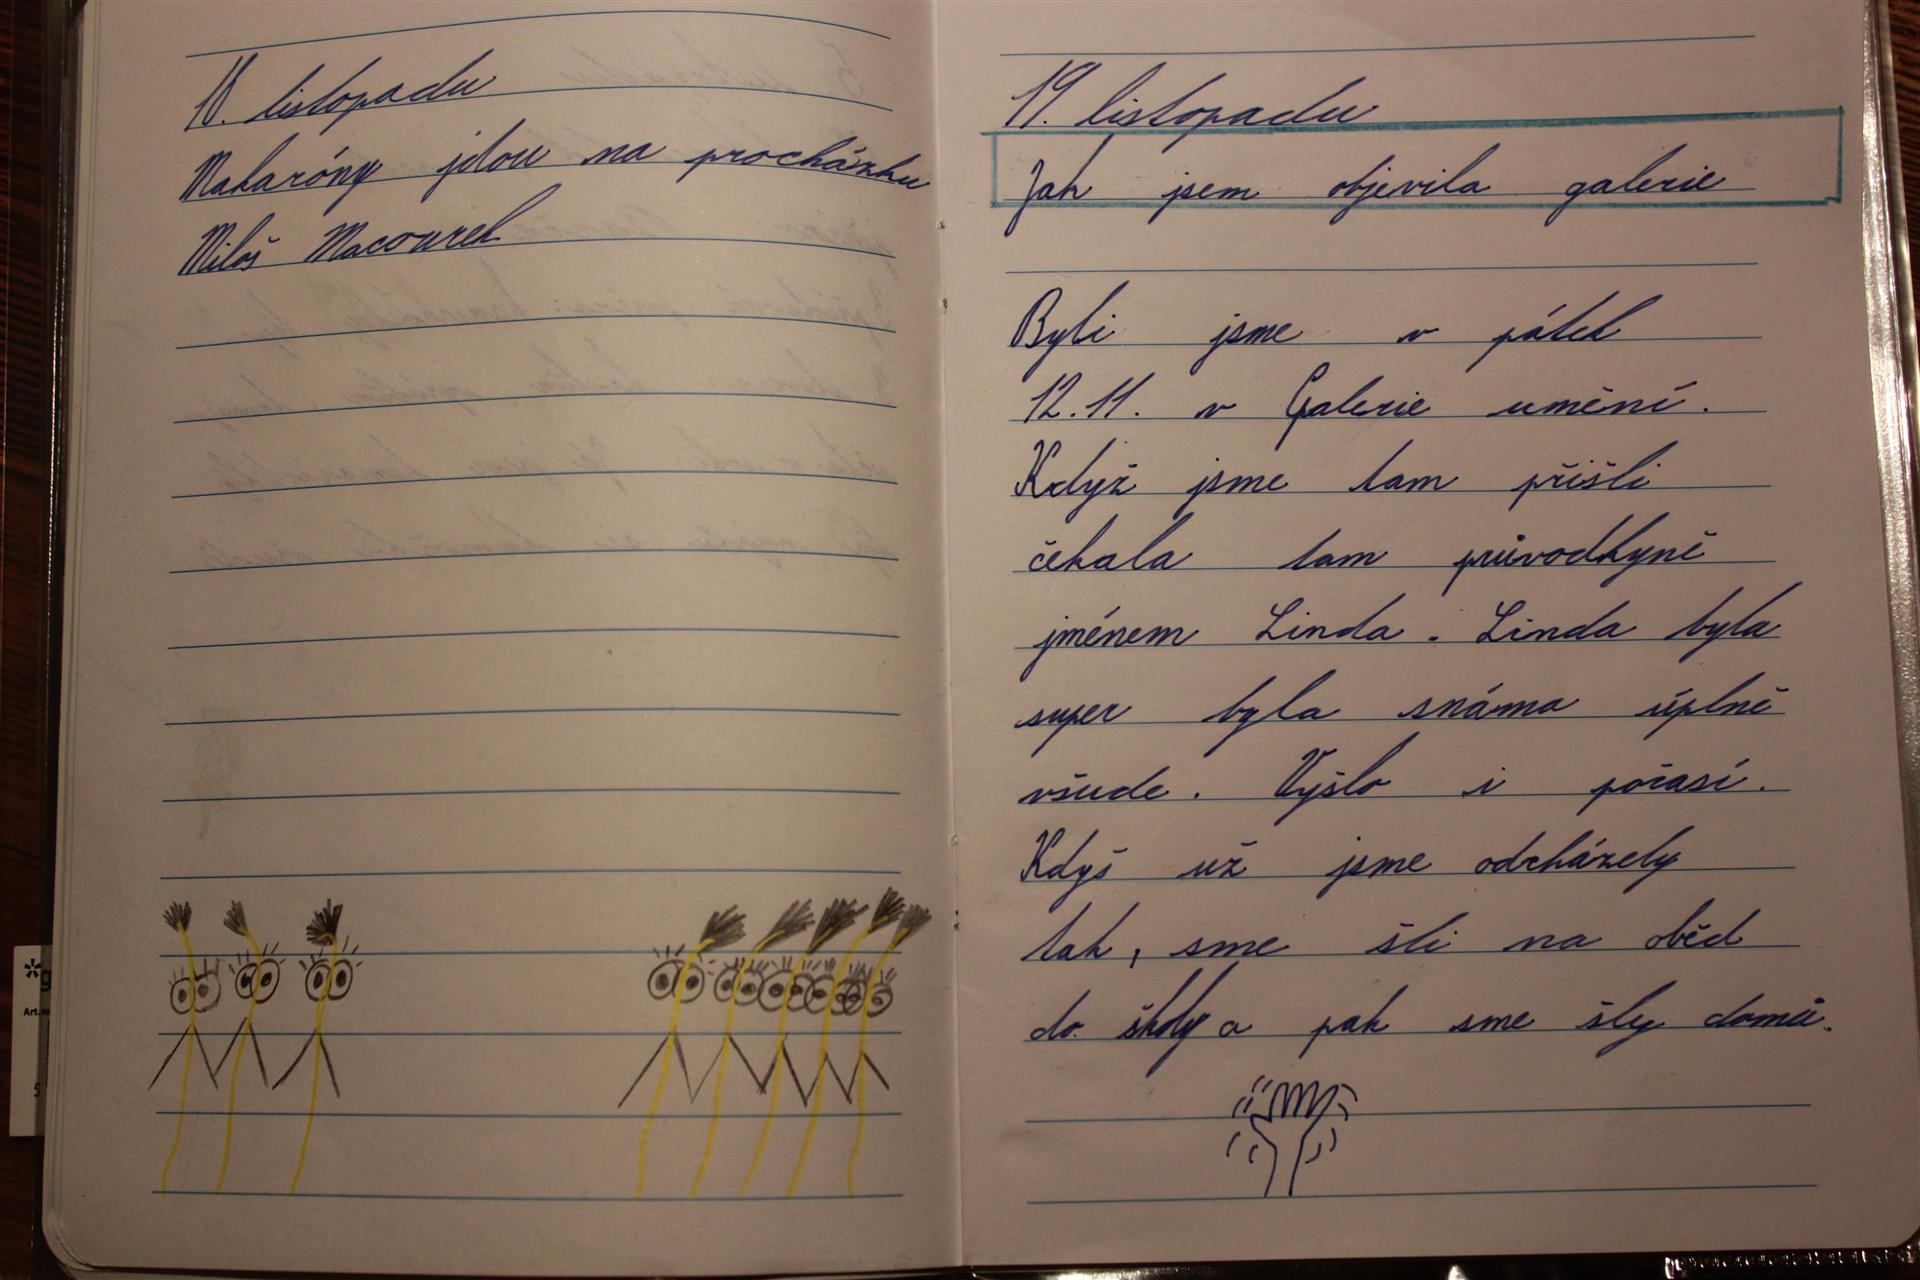 18. listopadu
Makaróny jdou na procházku
Miloš Macourek
19. listopadu
Jak jsem objevila galerie
Byli jsme v pátek
12.11. v Galerie umění.
Když jsme tam přišli
čekala tam průvodkyně
jménem Linda. Linda byla
super byla známa úplně
všude. Vyšlo i počasí.
Kdyš už jsme odcházely
tak, sme šli na oběd
do školy a pak sme šly domů.